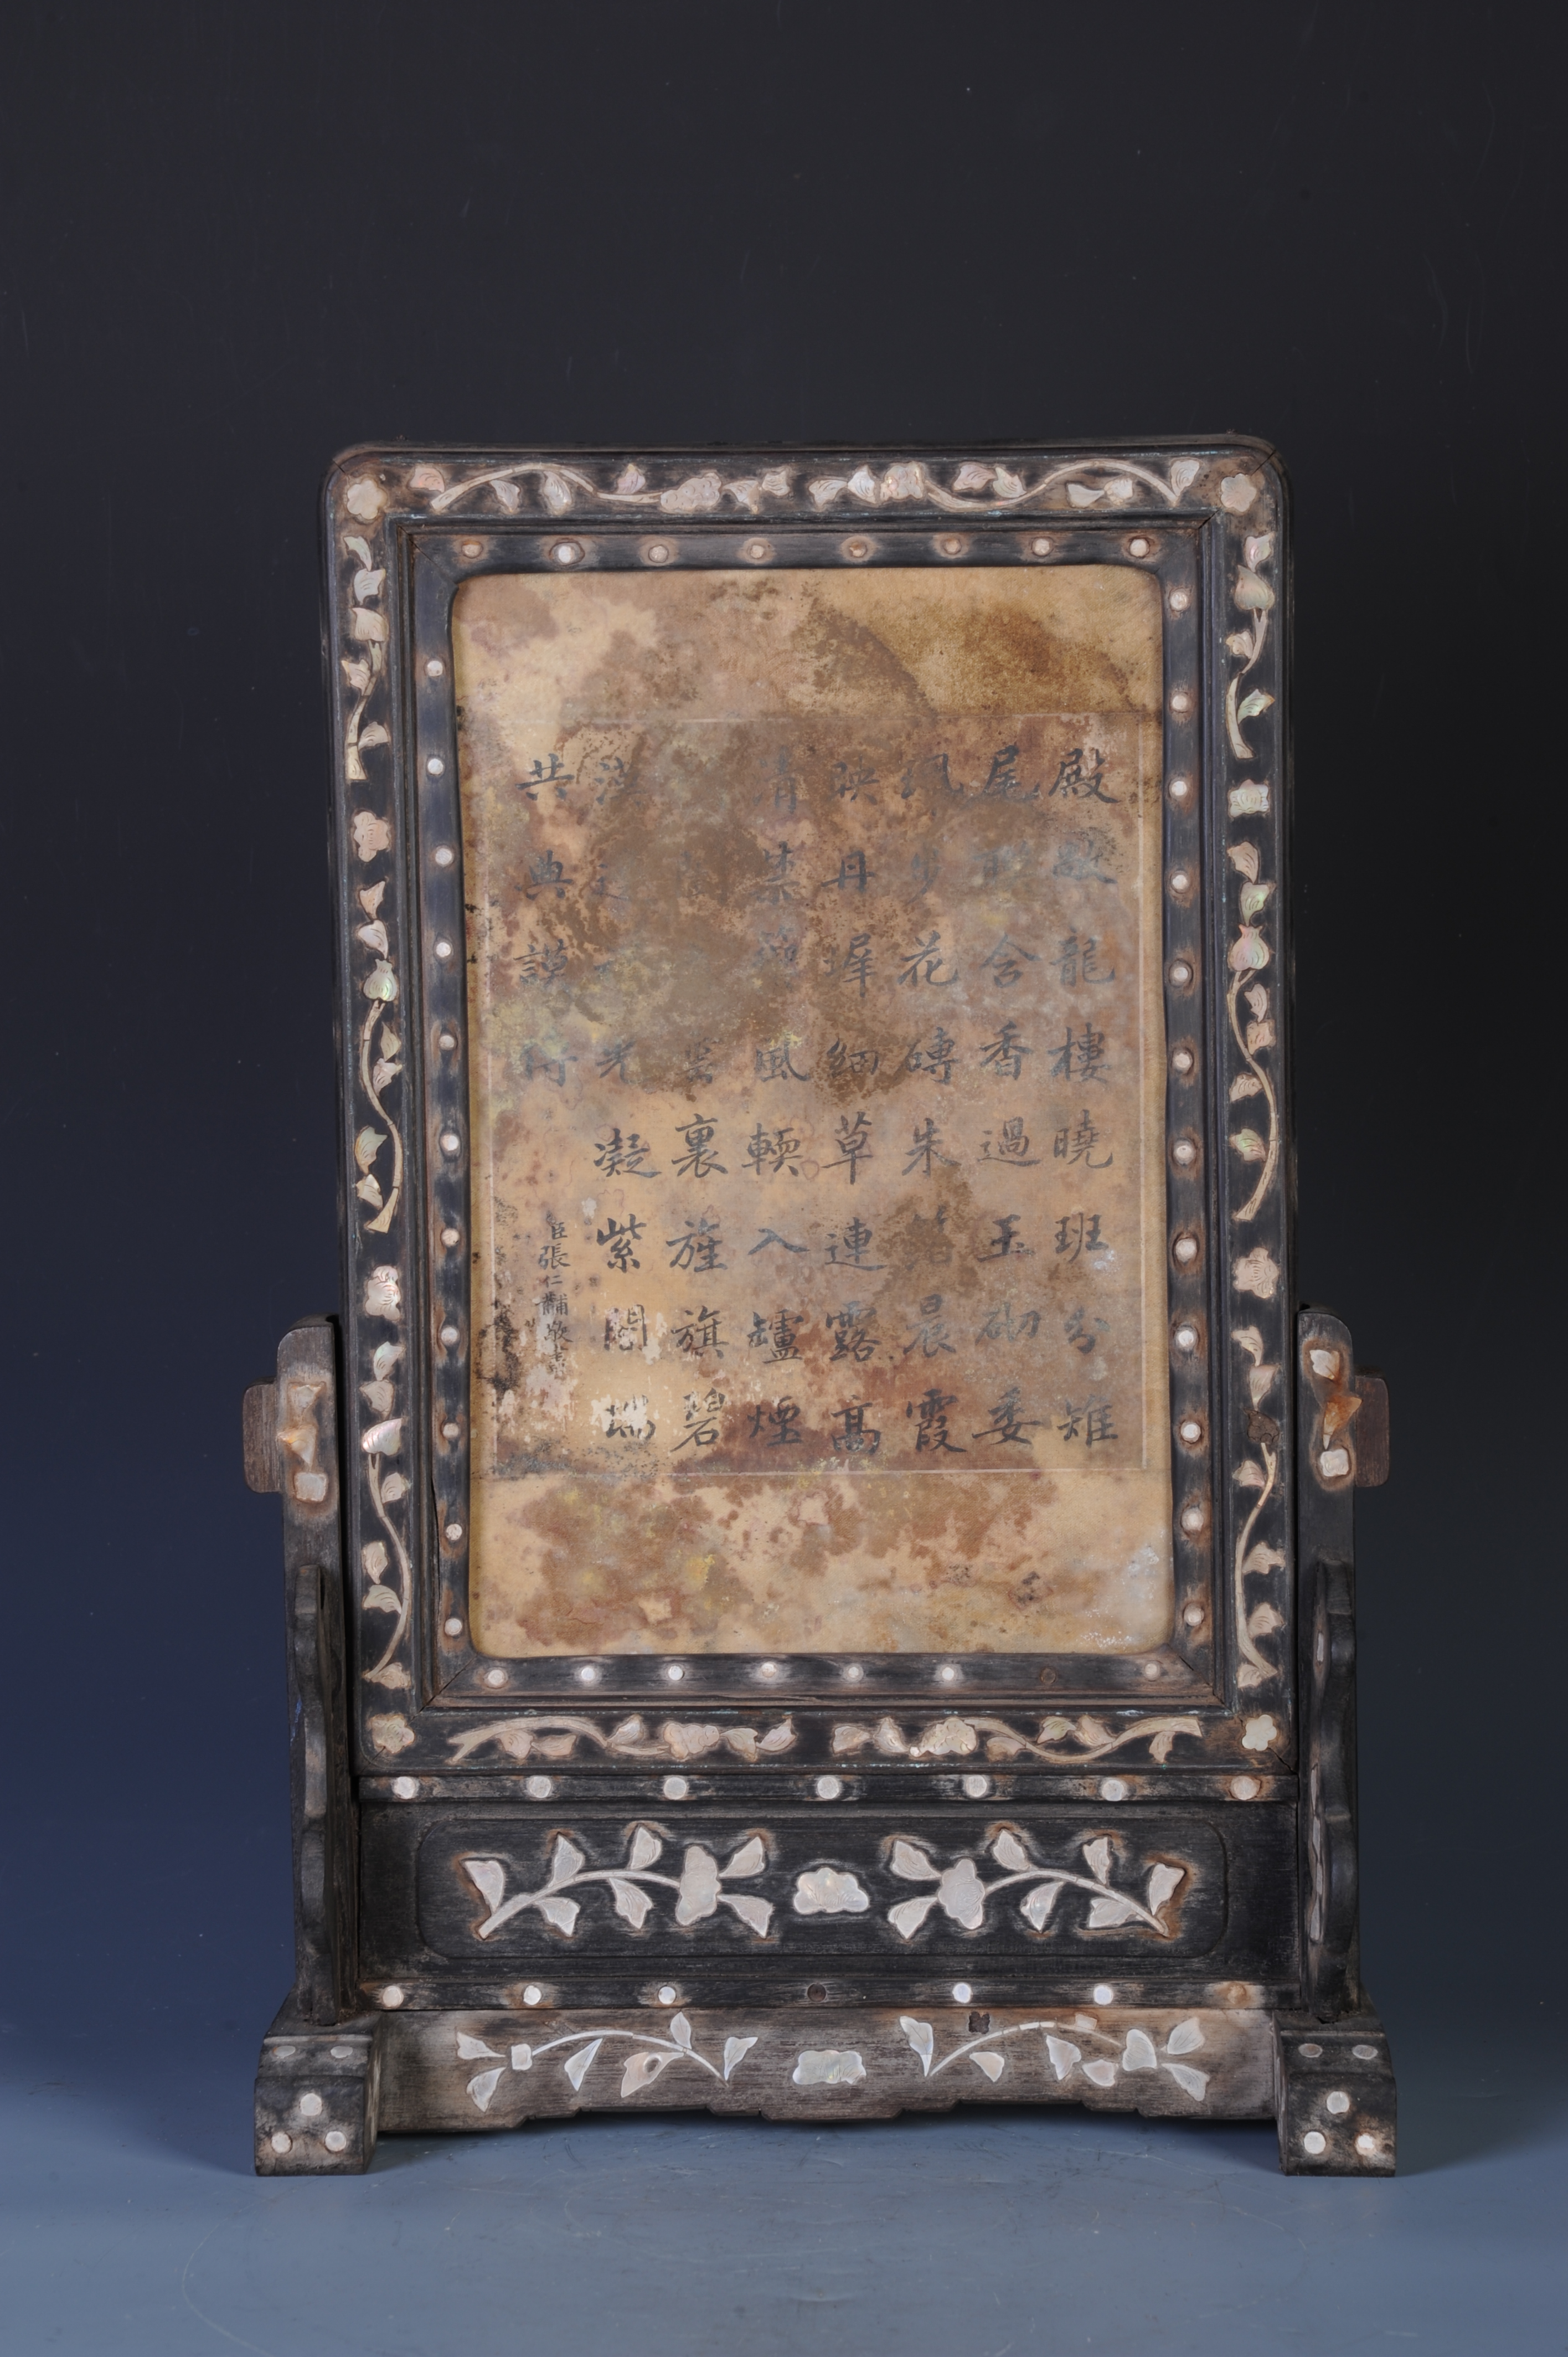 殿啟龍樓曉班分雉
尾 含香過玉砌委
珮步花磚朱 晨霞
映丹墀細草連露高
清禁 風輭入罏煙
裏旌旗碧
漢 光凝紫閣瑞
共典謨侍
臣張仁黼敬書